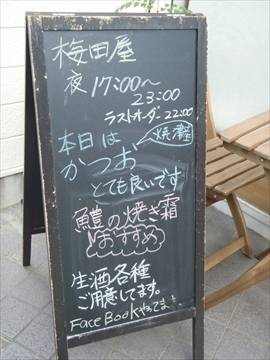 梅田屋
夜 17:00〜
23:00
ラストオーダー 22:00
本日は
かつお
とても良いです
鱧の焼き霜
おすすめ
生酒各種
ご用意してます。
FaceBookやってます